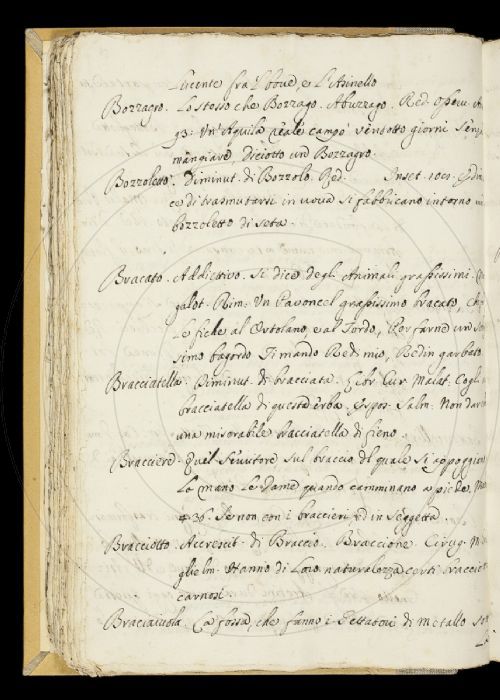 lucente fra 'l bove, e l'Asinello
Bozzagro. Lo stesso che Bozzago. Abuzzago. Red. Oss.
93: Un' Aquila reale campò ventotto giorni senza
mangiare, diciotto un Bozzagro.
Bozzoletto. Diminut. di Bozzolo. Red. Inset. 100.
ce di trasmutarsi in uova si fabbricano intorno un
bozzoletto di seta.
Bracato. Addiettivo. Si dice degli Animali grassissimi.
Rim: Un Pavoncel grassissimo bracato, Che
Le fiche al Ortolano, e al Tordo, Per farne un
simo bagordo Ti mando Redi mio, Redin garbato
Bracciatella. Diminut. di bracciata. Libr. Cur. Malat: Cogli
bracciatella di questa erba. Espos. Salm: Non darà
una miserabile bracciatella di fieno.
Bracciere. Quel Servitore, sul braccio del quale si appoggian
La mano le Dame quando camminano a piede.
436. Se non con i braccieri, ed in Seggetta.
Bracciotto. Accrescit. di Braccio. Braccione. Cirug. M.
Guglielm: Hanno di loro naturalezza certi bracciotti
carnosi
Braciaiuola. La fossa, che fanno i Gettatori di metallo